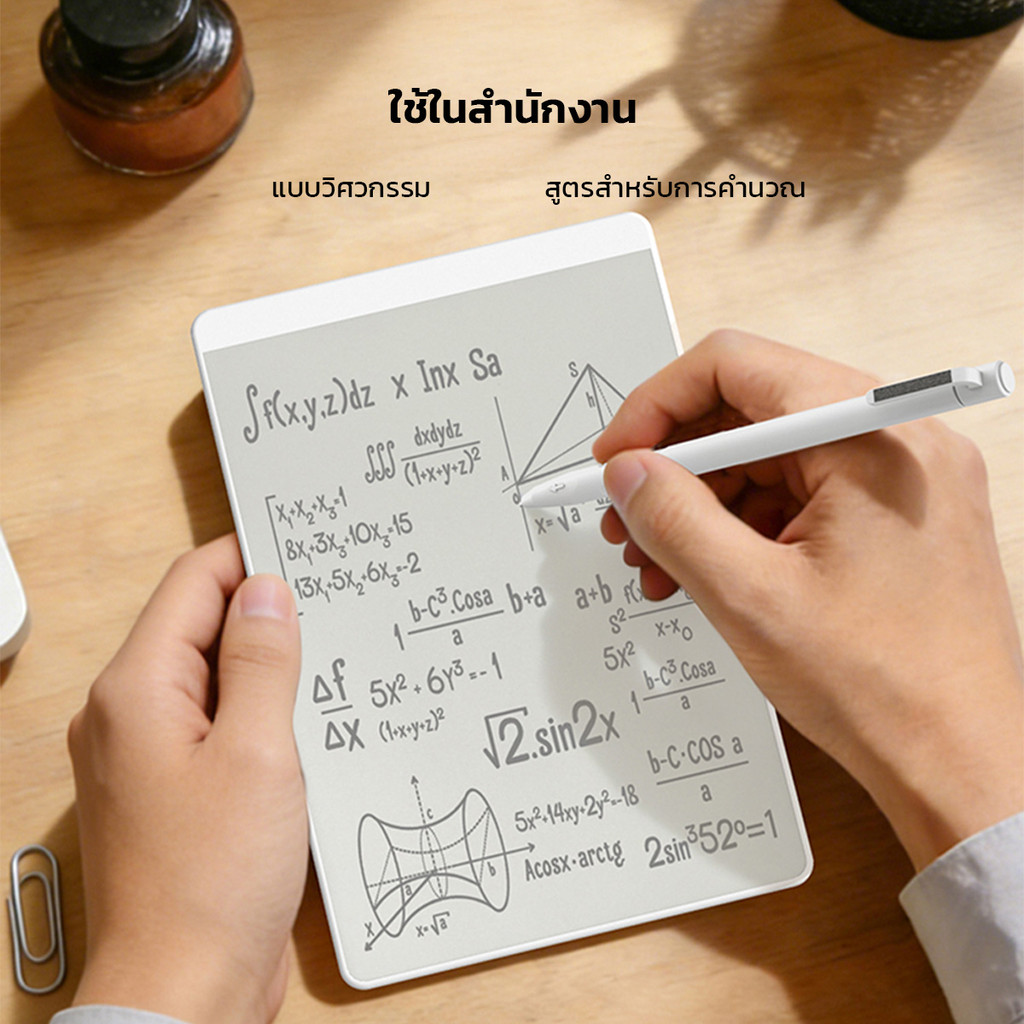 ใช้ในสำนักงาน
แบบวิศวกรรม
สูตรสำหรับการคำนวณ
∫f(x,y,z)dz x Inx Sa
∫∫∫ dxdydz
(1+x+y+z)²
S
h
A
x₁+x₂+x₃=1
8x₁+3x₃+10x₃=15
13x₁+5x₂+6x₃=-2
x=√a
1 b-C³.Cosa b+a
a
a+b
S² x-x₀
5x²
1 b-C³.Cosa
a
Δf
ΔX
5x² + 6y³ = -1
(1+x+y+z)²
√2.sin2x
b-C·COS a
a
c
a
b
X
x=√a
5x²+14xy+2y²=-18
Acosx·arctg
2sin³52º=1